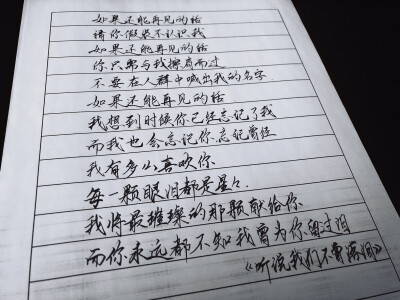 如果还能再见的话
请你假装不认识我
如果还能再见的话
你只需与我擦肩而过
不要在人群中喊出我的名字
如果还能再见的话
我想到时候你已经忘记了我
而我也会忘记你忘记曾经
我有多么喜欢你
每一颗眼泪都是星星
我将最璀璨的那颗献给你
而你永远都不知我曾为你留过泪
《听说我们不曾落泪》